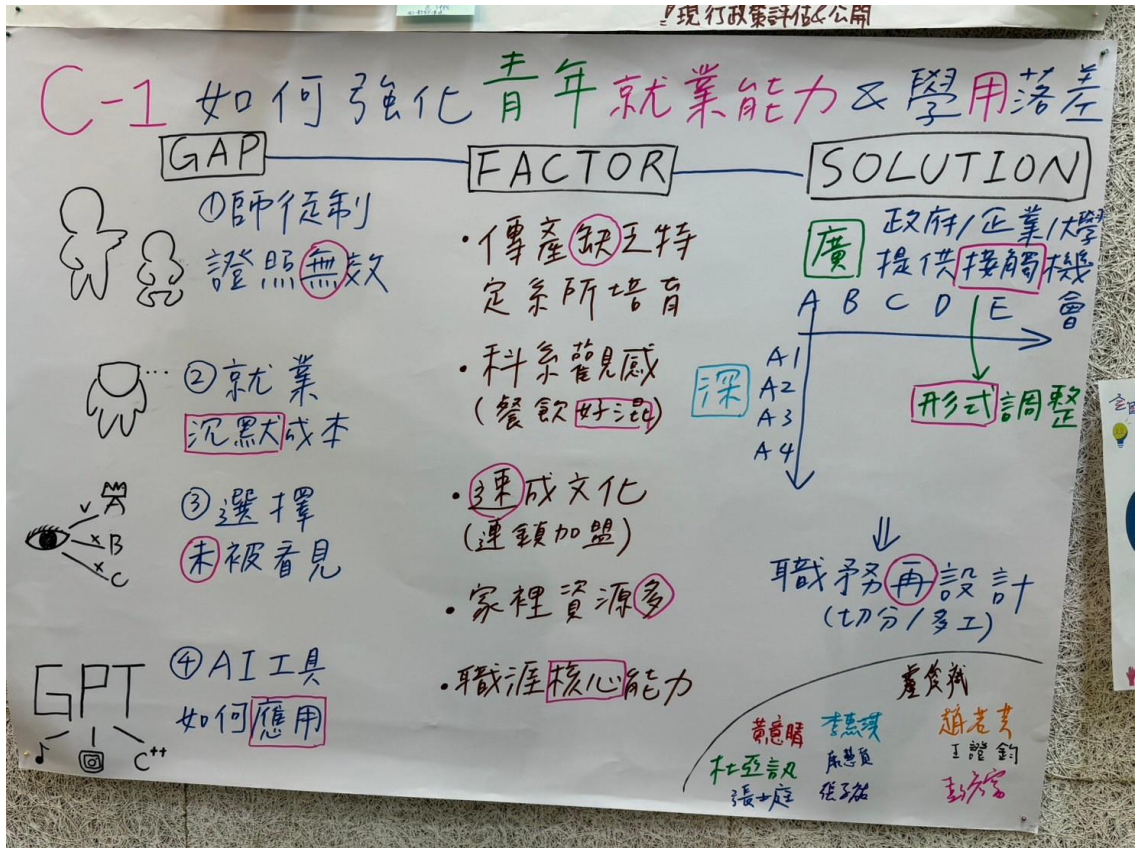 !現行政策評估&公開
C-1 如何強化青年就業能力&學用落差
GAP
①師徒制
證照無效
②就業
沉默成本
③選擇
未被看見
A
B
C
④AI工具
如何應用
GPT
C++
FACTOR
·傳產缺乏特
定系所培育
·科系觀感
(餐飲好混)
·速成文化
(連鎖加盟)
·家裡資源多
·職涯核心能力
SOLUTION
廣
政府/企業/大學
提供接觸機
會
A B C D E
深
A1
A2
A3
A4
形式調整
職務再設計
(切分/多工)
黃意晴
李惠琪
杜亞訊
張士庭
王證鈞